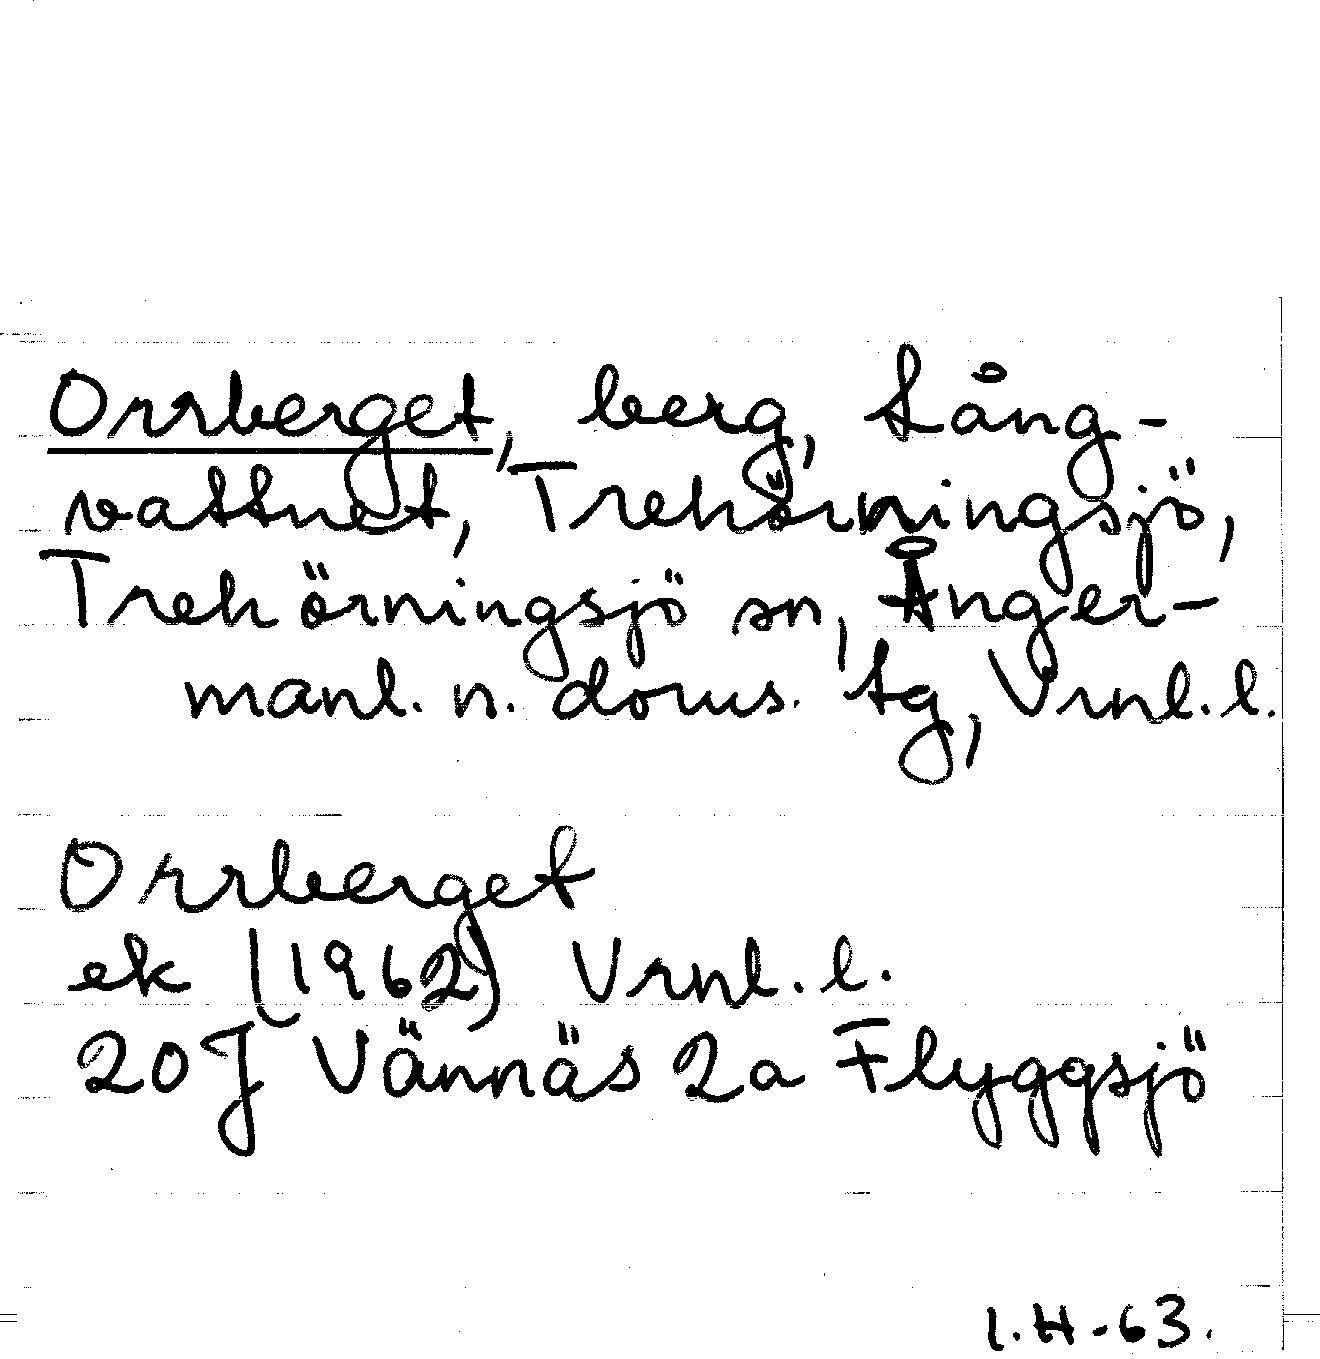 Orrberget, berg, Lång-
vattnet, Trehörningsjö,
Trehörningsjö sn, Ånger-
manl. n. doms. tg, Vrnl. l.
Orrberget
ek (1962) Vrnl. l.
20J Vännäs 2a Flyggsjö
I.H-63.